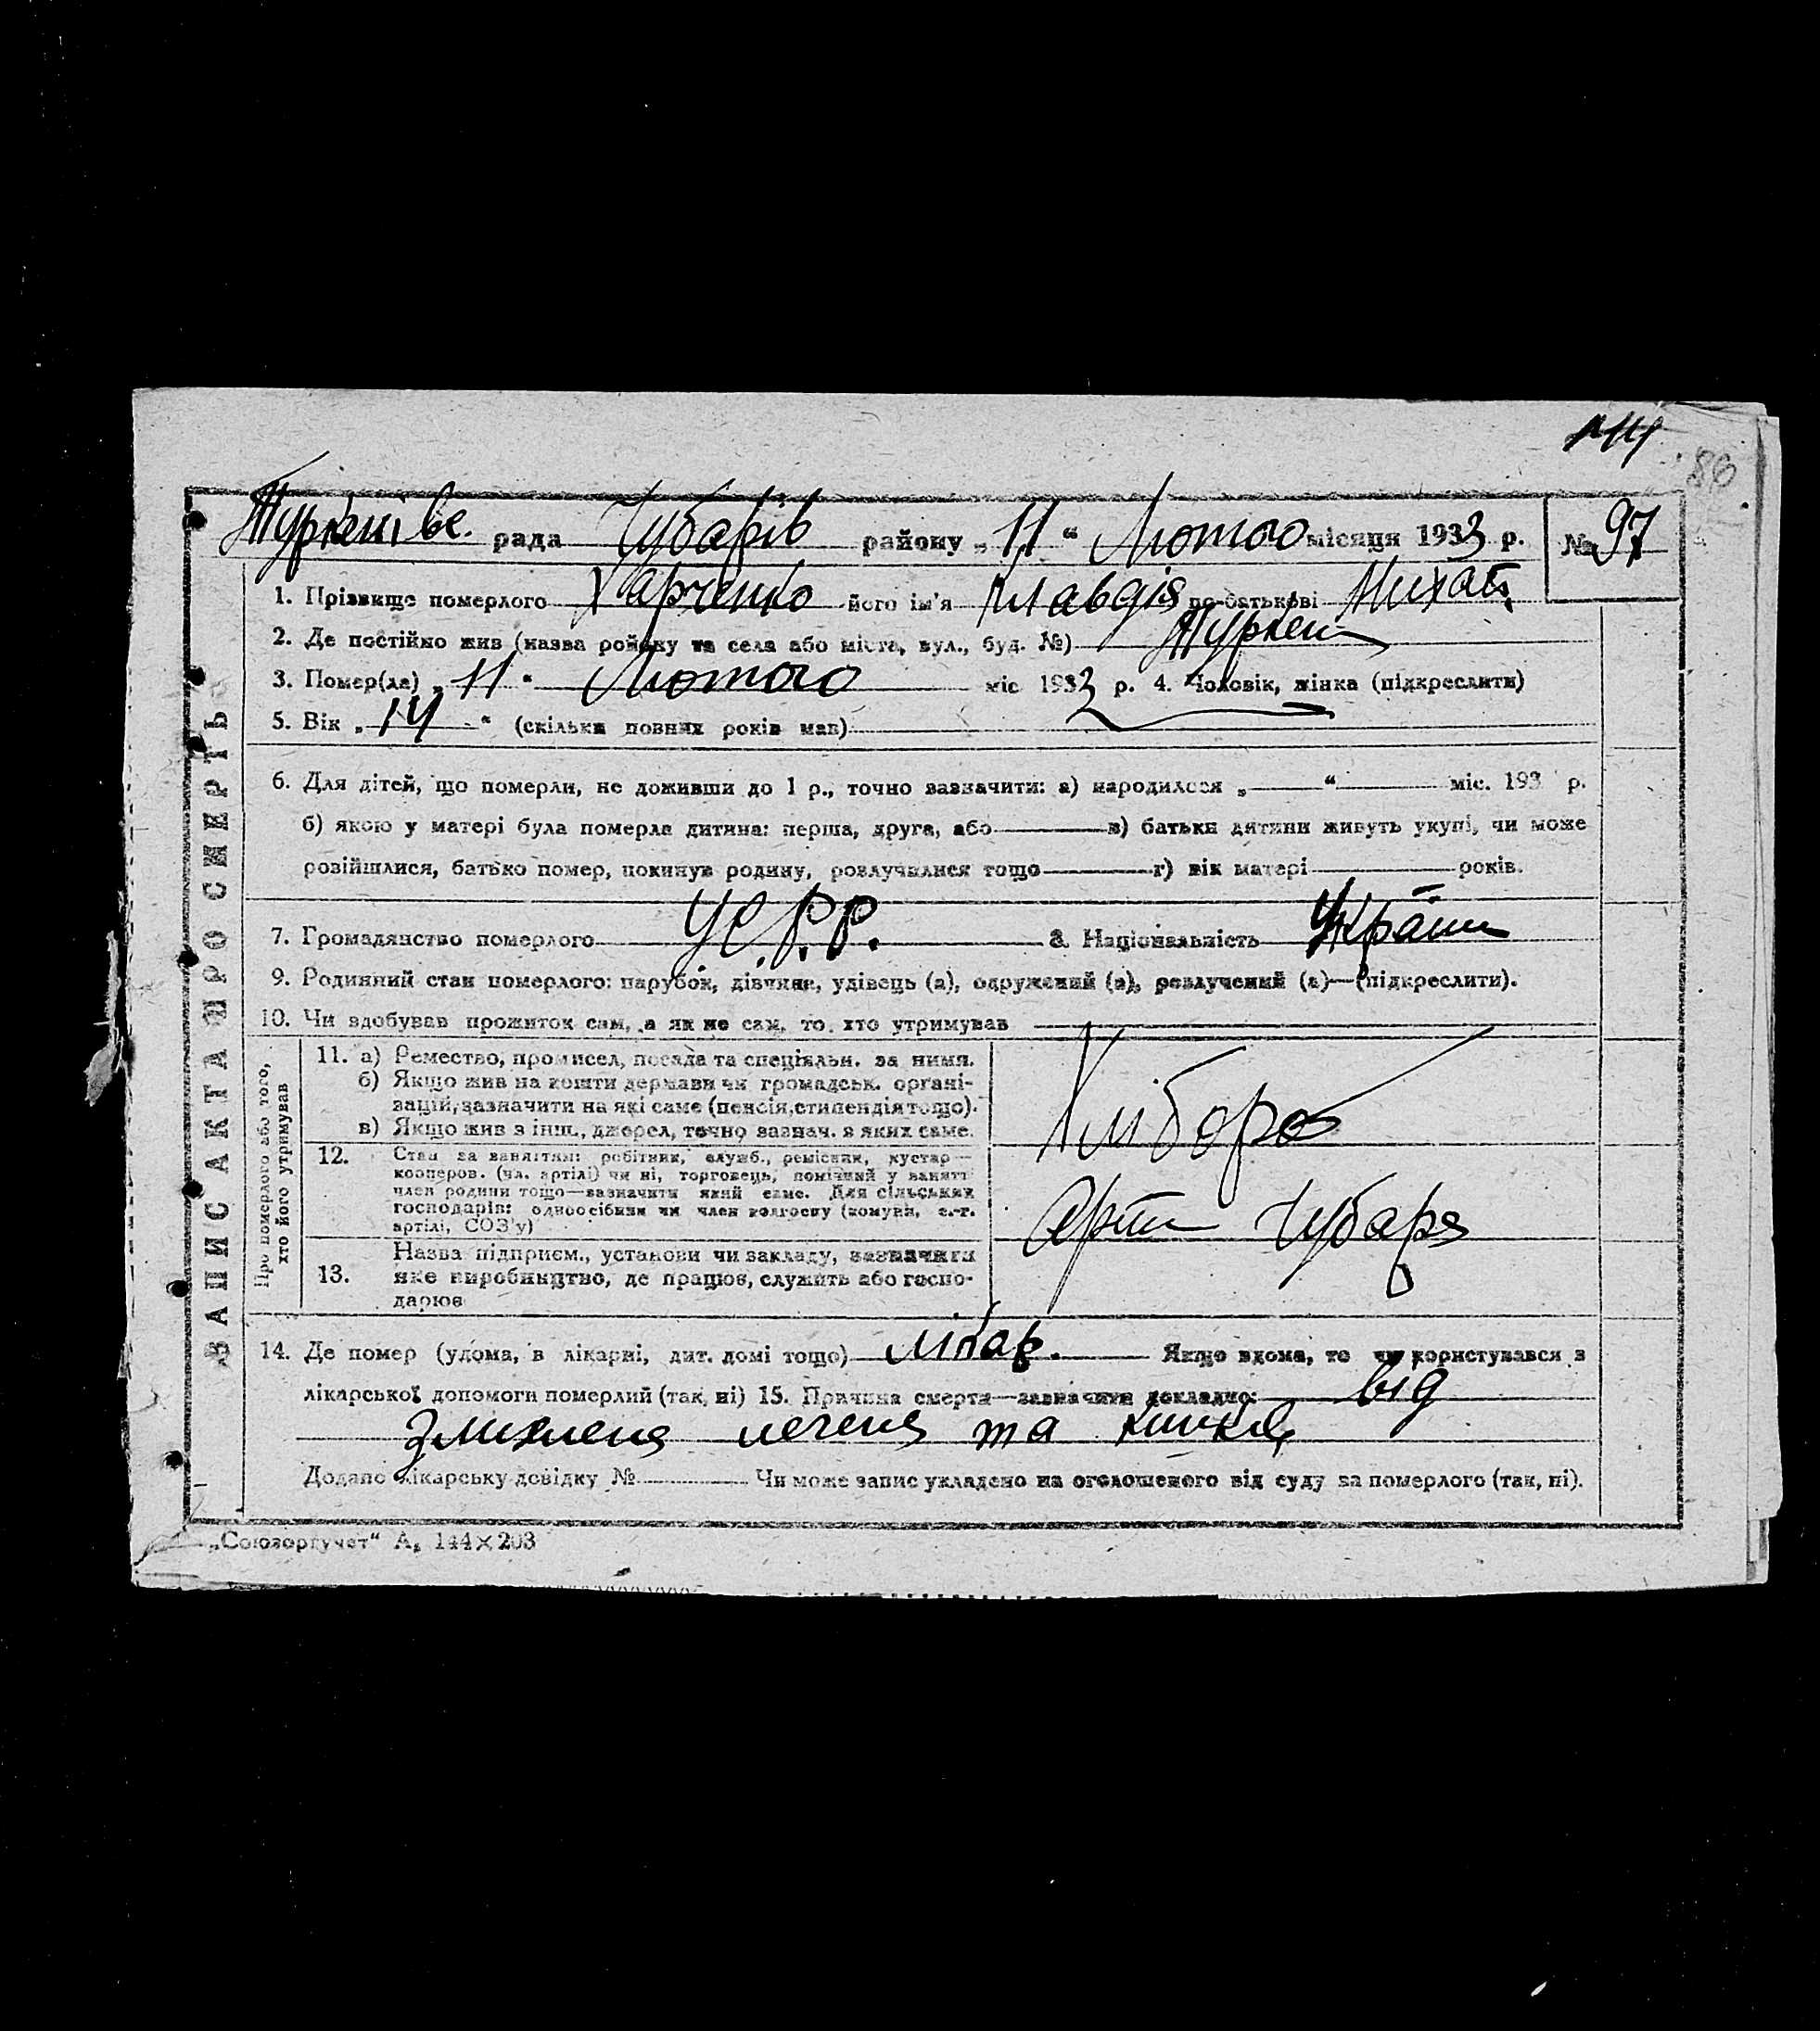 114
86
Туркенівс. рада Чубарів району „11“ Лютого місяця 1933 р. № 97
1. Прізвище померлого Харченко його ім'я Клавдія по-батькові Михайл.
2. Де постійно жив (назва району та села або міста, вул., буд. №) Туркен
3. Помер(ла) „11“ Лютого міс 1933 р. 4. Чоловік, жінка (підкреслити)
5. Вік „14“ (скільки повних років мав)
6. Для дітей, що померли, не доживши до 1 р., точно зазначити: а) народилося „ “ міс. 193 р.
б) якою у матері була померла дитина: перша, друга, або в) батьки дитини живуть укупі, чи може
розійшлися, батько помер, покинув родину, розлучилися тощо г) вік матері років.
7. Громадянство померлого УСРР. 8. Національність Україн
9. Родинний стан померлого: парубок, дівчина, удівець (а), одружений (а), розлучений (а)—(підкреслити).
10. Чи здобував прожиток сам, а як не сам, то хто утримував
ЗАПИС АКТА ПРО СМЕРТЬ
Про померлого або того, хто його утримував
11. а) Ремество, промисел, посада та спеціяльн. за ними.
б) Якщо жив на кошти держави чи громадськ. органі-
зацій, зазначити на які саме (пенсія, стипендія тощо).
в) Якщо жив з інш., джерел, точно зазнач. з яких саме.
Хлібороб
12. Стан за заняттям: робітник, служб., ремісник, кустар—
кооперов. (чл. артілі) чи ні, торговець, помічний у занятті
член родини тощо—зазначити який саме. Для сільських
господарів: одноосібник чи член колгоспу (комуни, с.-г.
артілі, СОЗ'у)
Арти Чубаря
13. Назва підприєм., установи чи закладу, зазначити
яке виробництво, де працює, служить або госпо-
дарює
14. Де помер (удома, в лікарні, дит. домі тощо) лікар. Якщо вдома, то чи користувався з
лікарської допомоги померлий (так, ні) 15. Причина смерти—зазначити докладно: від
печеня та кишків
Додано лікарську довідку № Чи може запис укладено на оголошеного від суду за померлого (так, ні).
„Союзоргучет“ А₅ 144×203